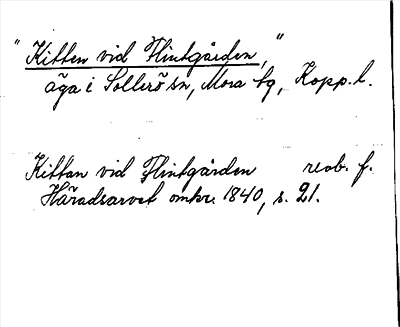 "Kitten vid Flintgården,"
äga i Sollerö sn, Mora tg, Kopp. l.
Kittan vid Flintgården reob. f.
Häradsarvet omkr. 1840, s. 21.